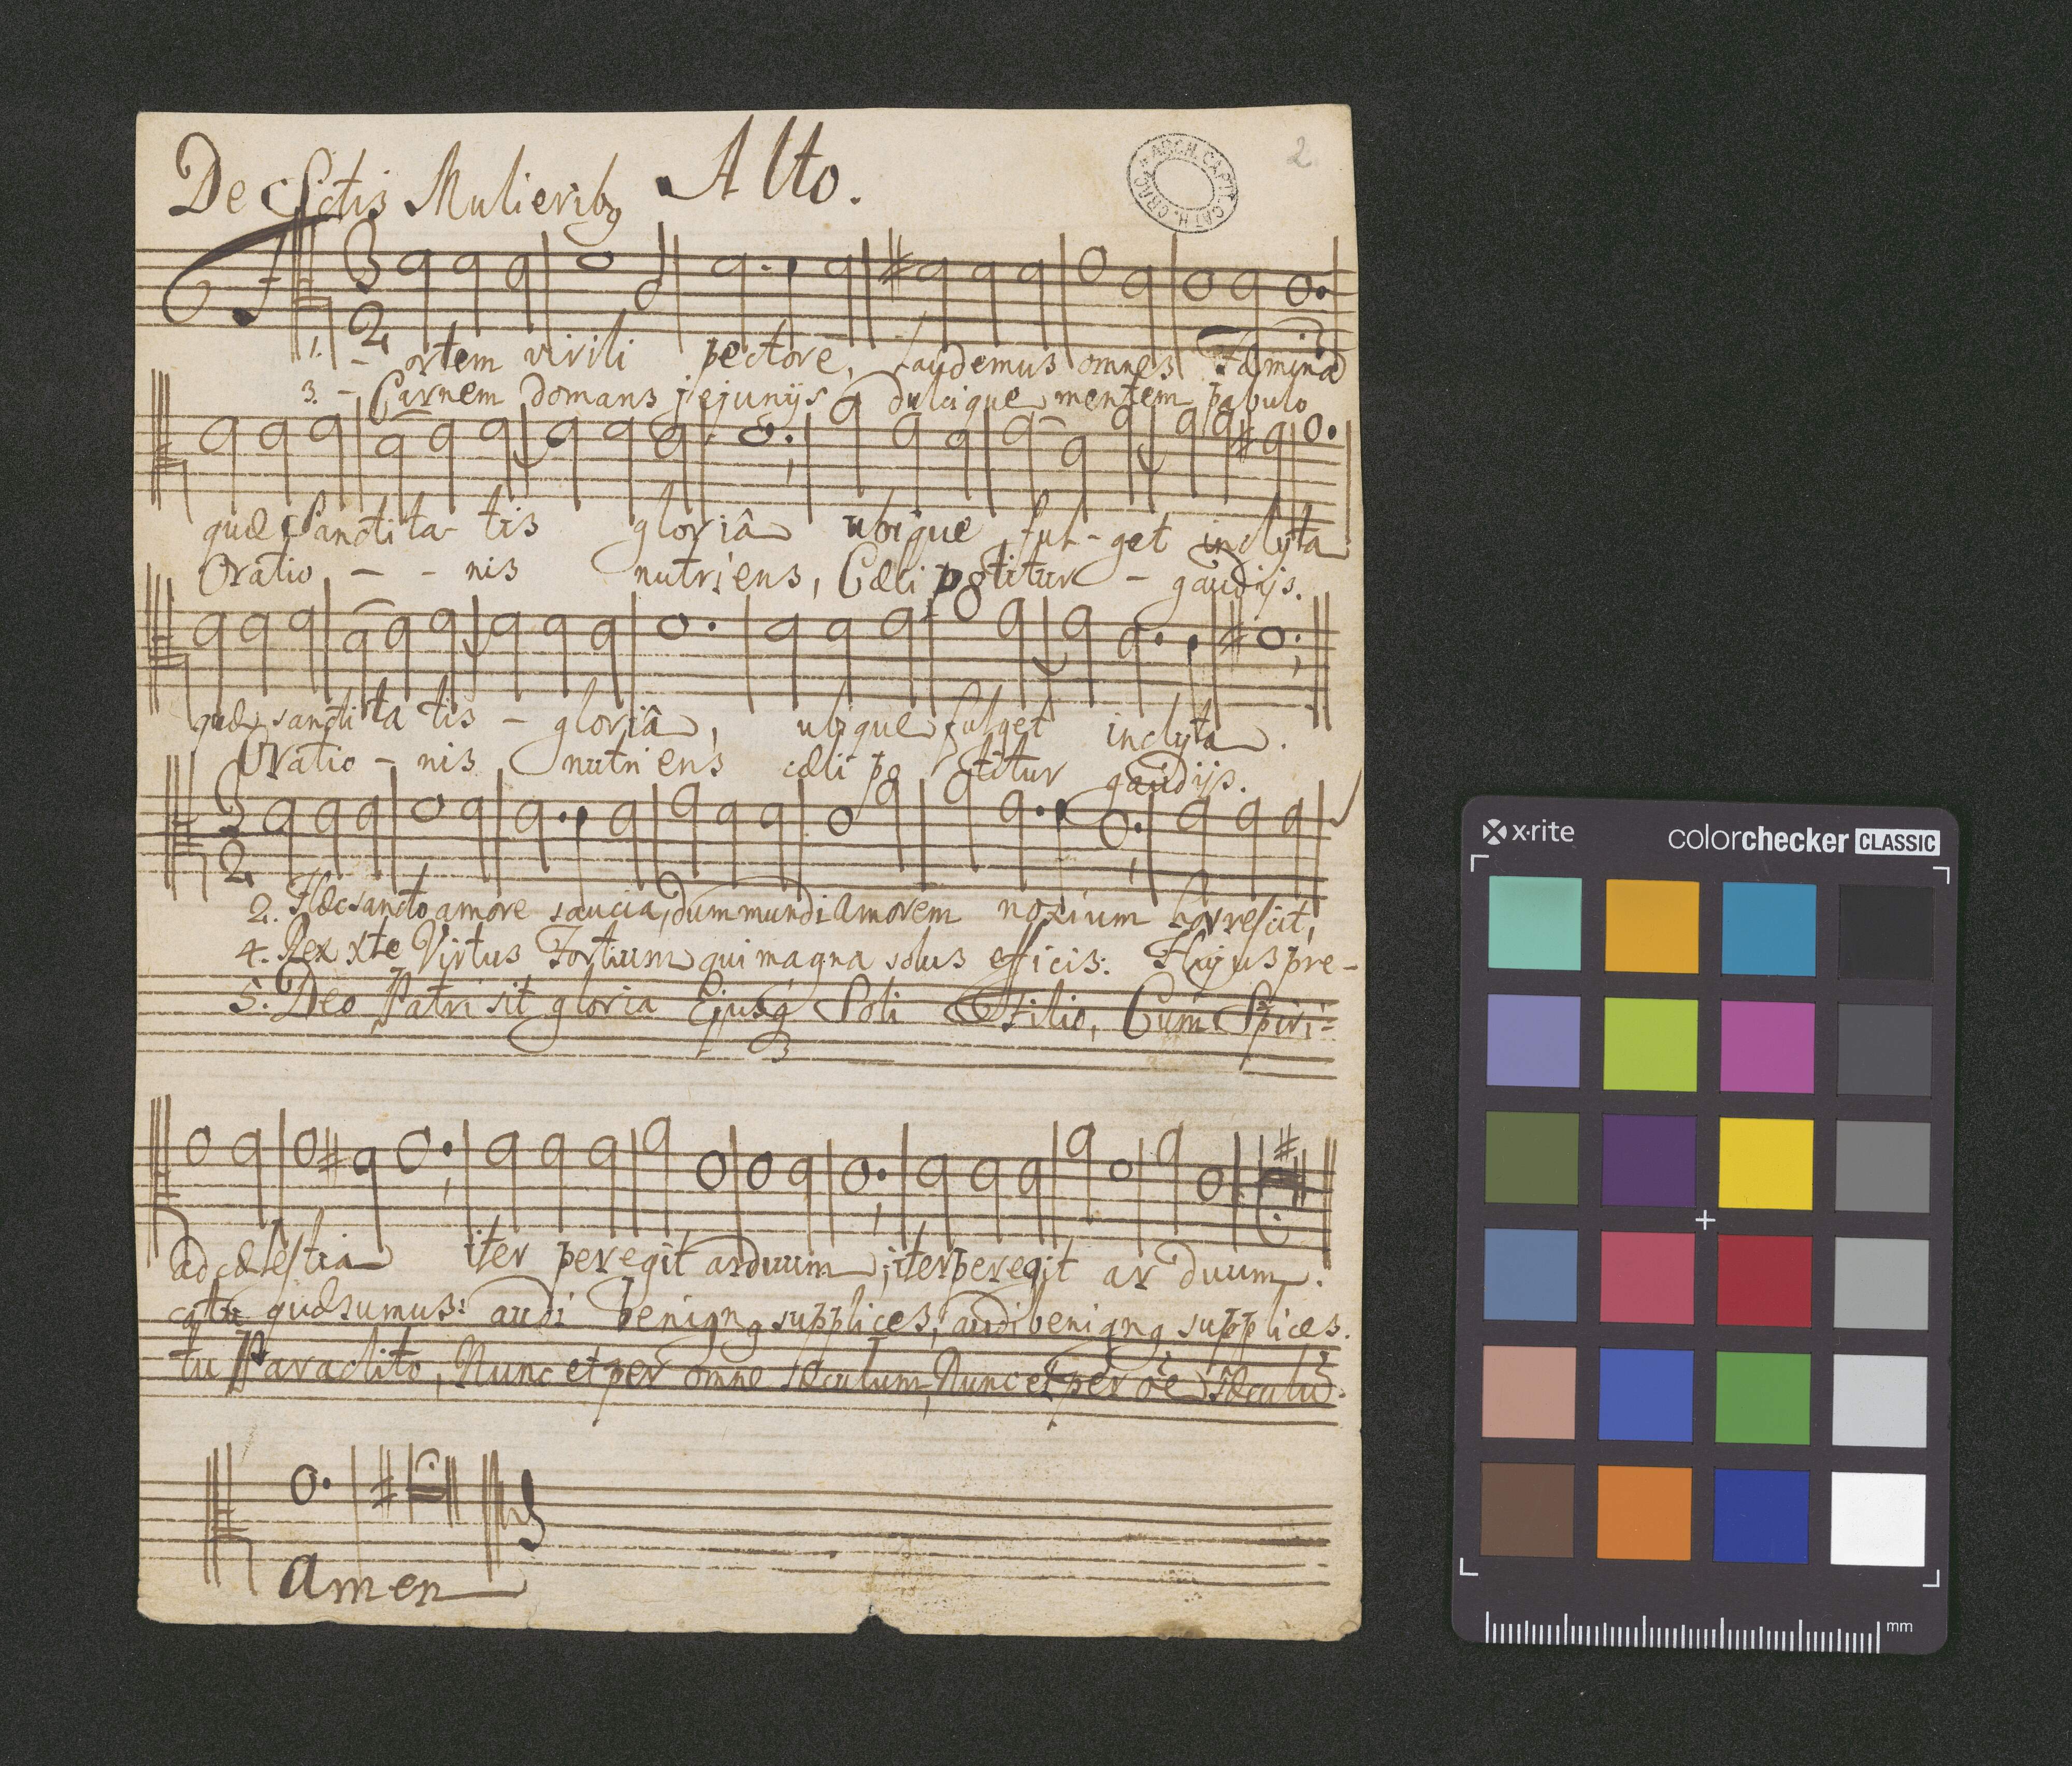 De Sctis Mulierib9 Alto.
2
ARCH. CAPIT. CATH. CRAC.
3
2
F
1. - ortem virili pectore, Laudemus omnes Fæminã
3. - Carnem domans jejunijs dulcique mentem pabulo
quæ Sanctita- tis gloriâ ubique ful-get inclyta
Oratio - - nis nutriens, Cæli potitur - gaudijs.
quæ sanctita tis - gloriâ, ubique fulget inclyta.
Oratio - nis nutriens cæli po titur gaudijs.
3
2
2. Hæc sancto amore saucia, dum mundi amorem noxium horrescit,
4. Rex xte Virtus Fortium qui magna solus efficis: Hujus pre-
5. Deo Patri sit gloria Ejusq3 Soli Filio, Cum Spiri-
ad cælestia iter peregit arduum, iter peregit arduum.
catu quæsumus: audi benign9 supplices, audi benign9 supplices.
tu Paraclito, Nunc et per omne sæculum, Nunc et per oẽ sæculũ.
Amen
x-rite colorchecker CLASSIC
mm